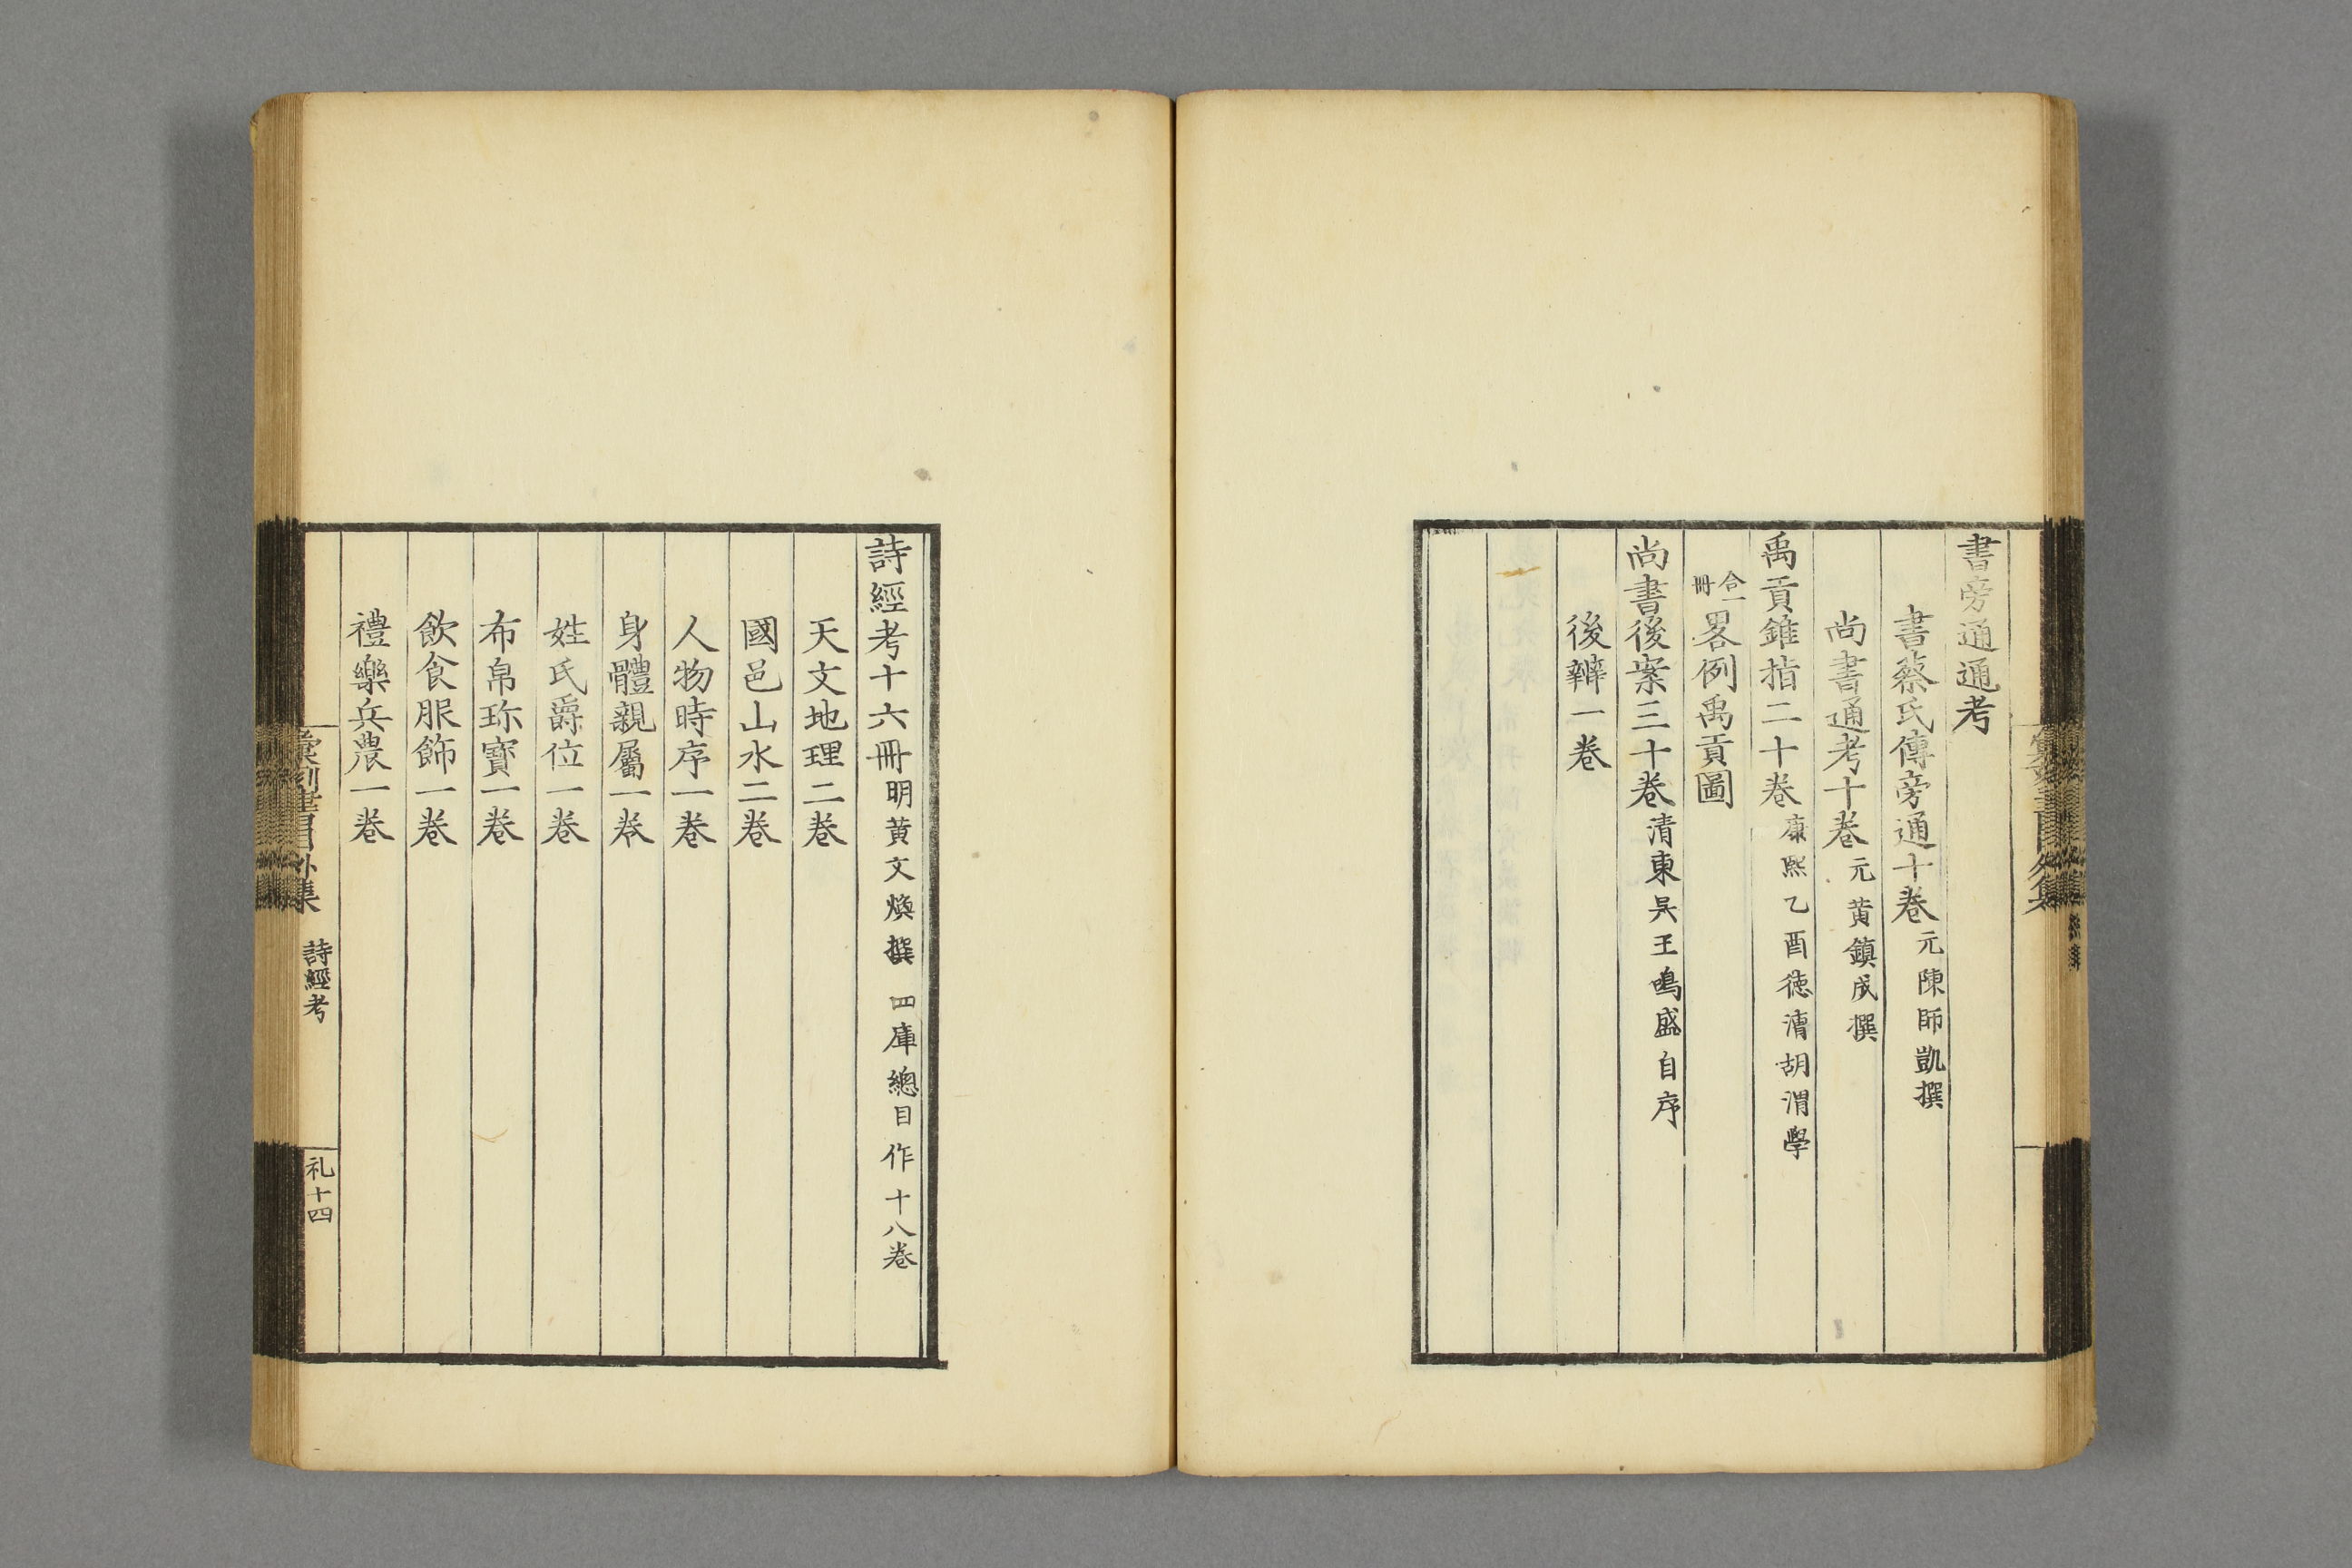 書旁通通考
書蔡氏傳旁通十卷元陳師凱撰
尚書通考十卷元黄鎮成撰
禹貢錐指二十卷康熙乙酉徳清胡渭學
合一冊
畧例禹貢圖
尚書後案三十卷清東吴王鳴盛自序
後辨一卷
詩經考十六冊明黄文煥撰 四庫總目作十八卷
天文地理二卷
國邑山水二卷
人物時序一卷
身體親屬一卷
姓氏爵位一卷
布帛珎寳一卷
飲食服飾一卷
禮樂兵農一卷
彙刻書目外集 詩經考
礼十四